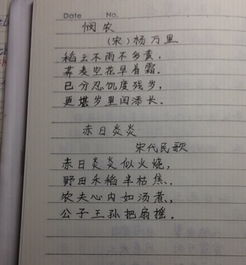 Date No.
悯农
(宋)杨万里
稻云不雨不多黄,
荞麦空花早着霜。
已分忍饥度残岁,
更堪岁里闰添长。
赤日炎炎
宋代民歌
赤日炎炎似火烧,
野田禾稻半枯焦。
农夫心内如汤煮,
公子王孙把扇摇。